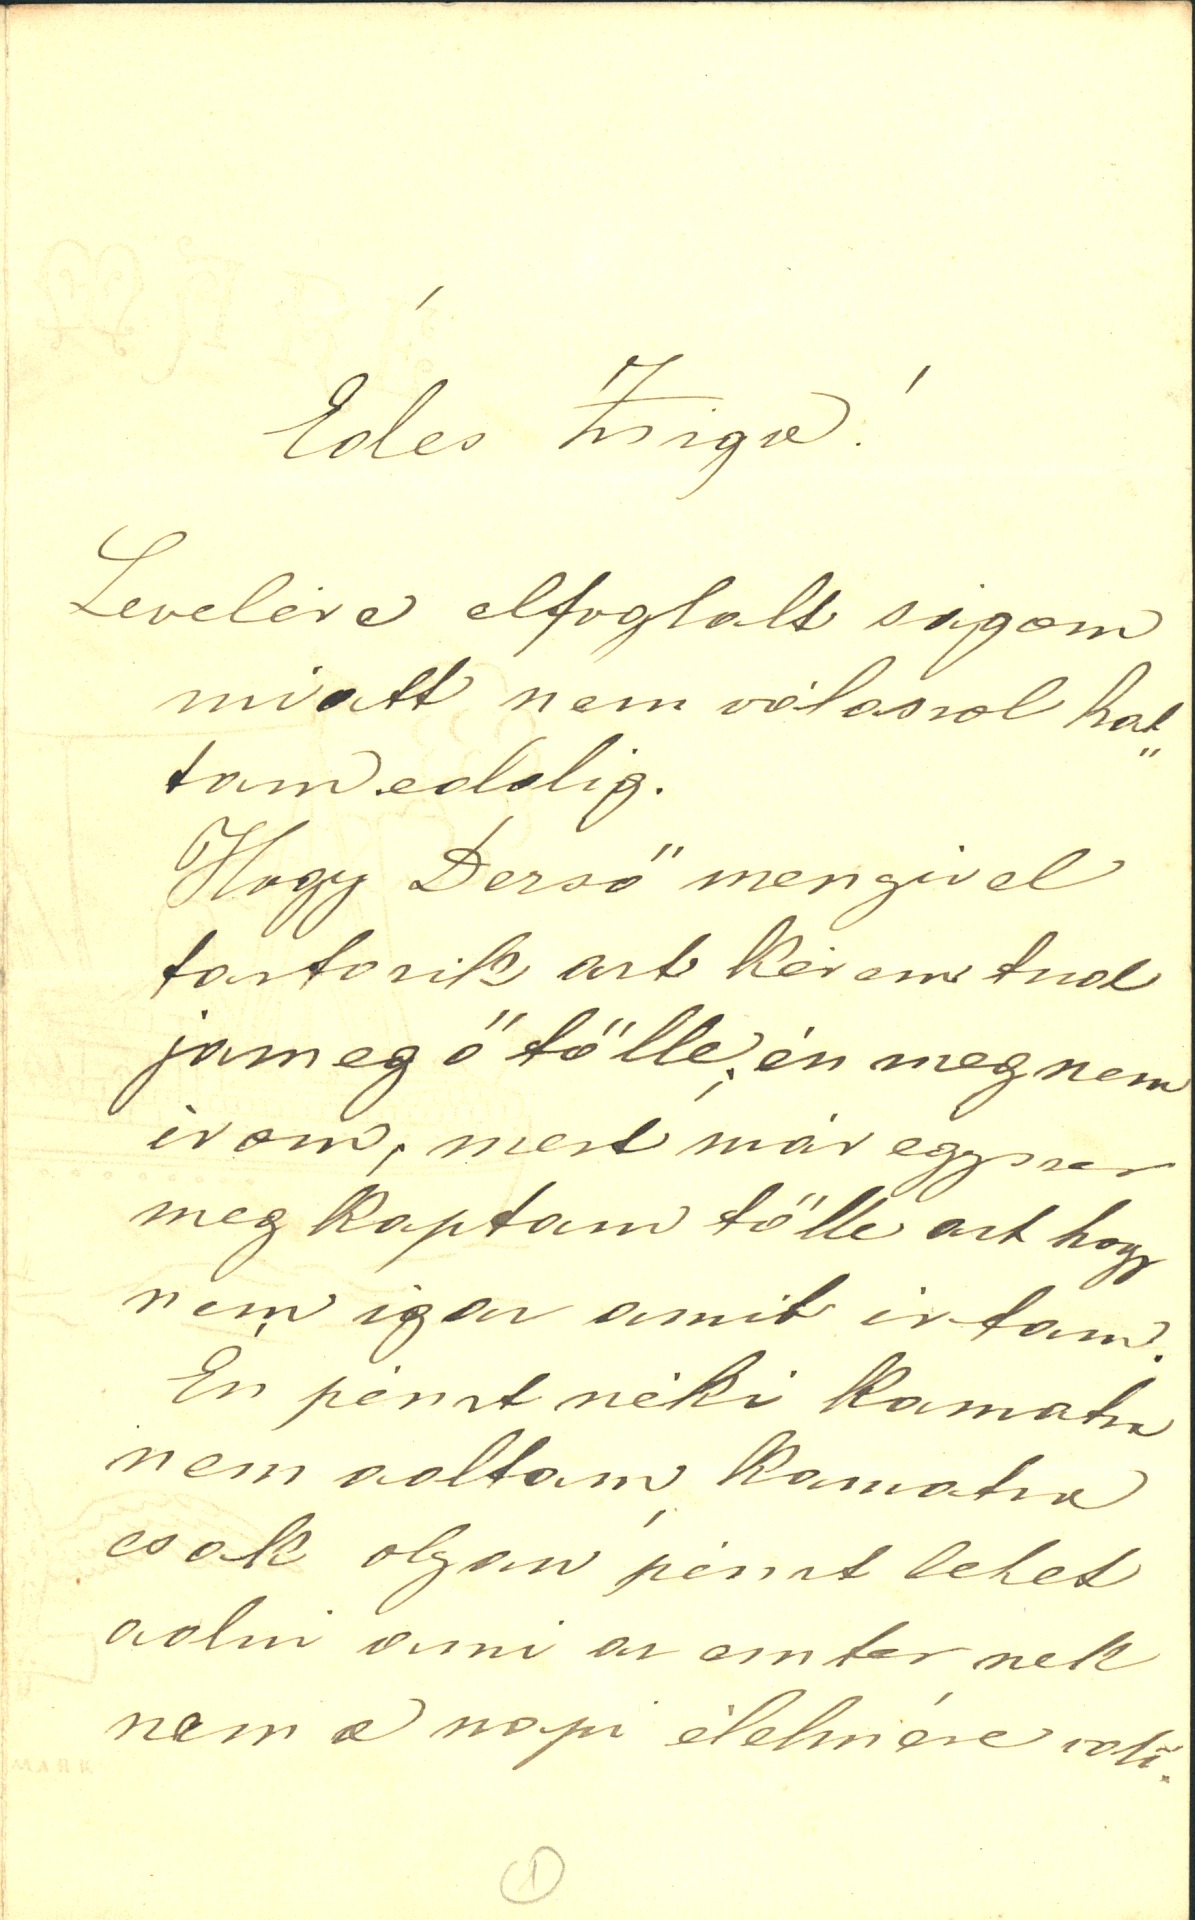 Édes Zsiga!
Levelére elfoglalt ságom
miatt nem válaszol hat„
tam eddig.
Hogy Dersö mengivel
tartozik azt kérem tud
jameg ö tölle, én meg nem
irom, mert már egyszer
meg kaptam tölle azt hogy
nem igaz amit irtam.
Én pénzt néki kamatra
nem adtam, kamatra
csak olyan pénzt lehet
adni ami az ember nek
nem a napi élelmére való.
1